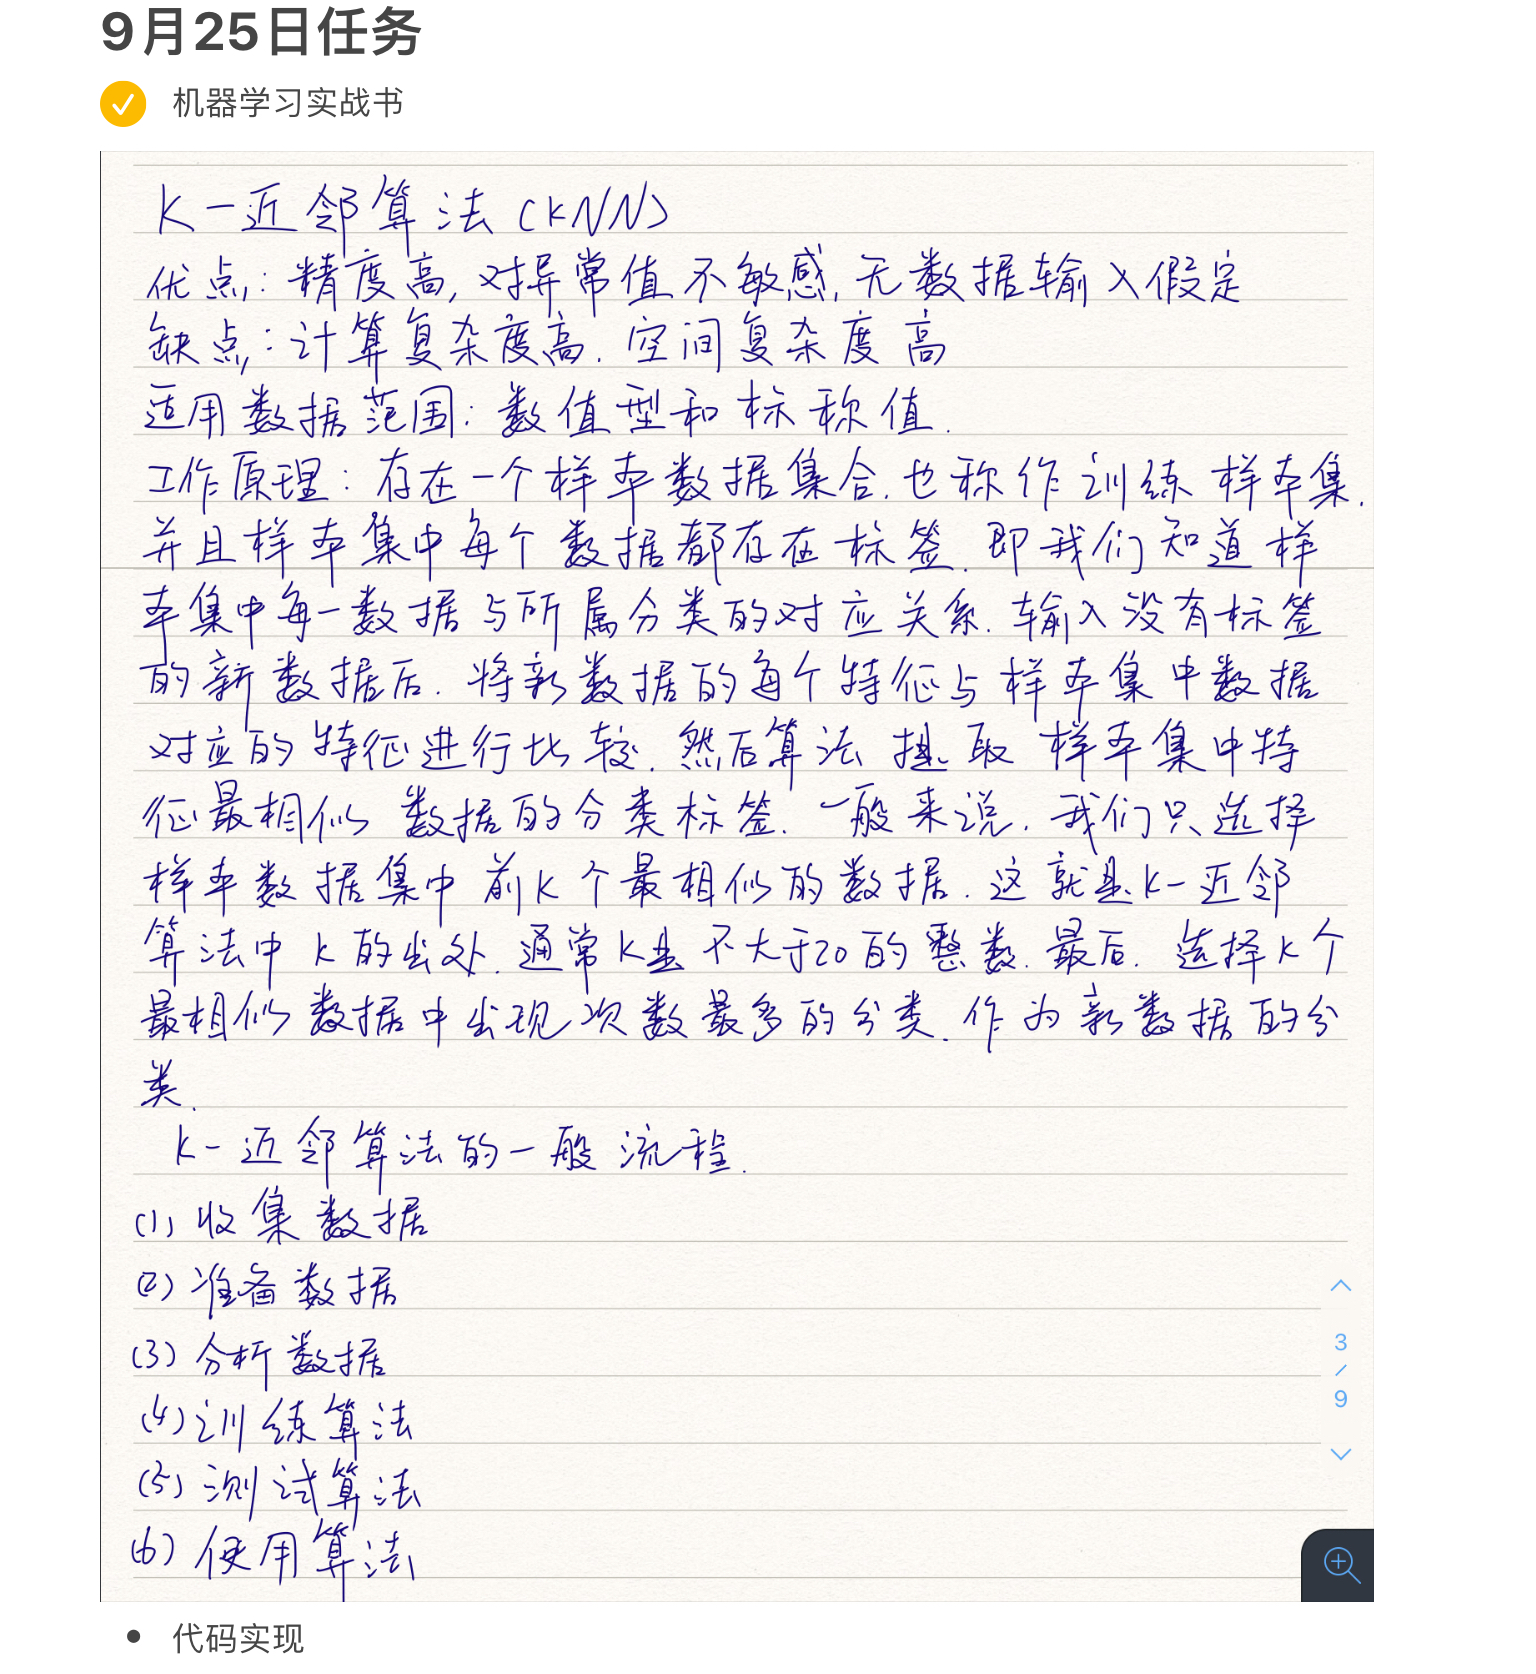 9月25日任务
机器学习实战书
K-近邻算法(KNN)
优点:精度高,对异常值不敏感,无数据输入假定
缺点:计算复杂度高.空间复杂度高
适用数据范围:数值型和标称值.
工作原理:存在一个样本数据集合.也称作训练样本集.
并且样本集中每个数据都存在标签.即我们知道样
本集中每一数据与所属分类的对应关系.输入没有标签
的新数据后.将新数据的每个特征与样本集中数据
对应的特征进行比较.然后算法提取样本集中特
征最相似数据的分类标签.一般来说.我们只选择
样本数据集中前K个最相似的数据.这就是K-近邻
算法中K的出处.通常K是不大于20的整数.最后.选择K个
最相似数据中出现次数最多的分类.作为新数据的分
类.
K-近邻算法的一般流程.
(1)收集数据
(2)准备数据
(3)分析数据
(4)训练算法
(5)测试算法
(6)使用算法
3
/
9
代码实现